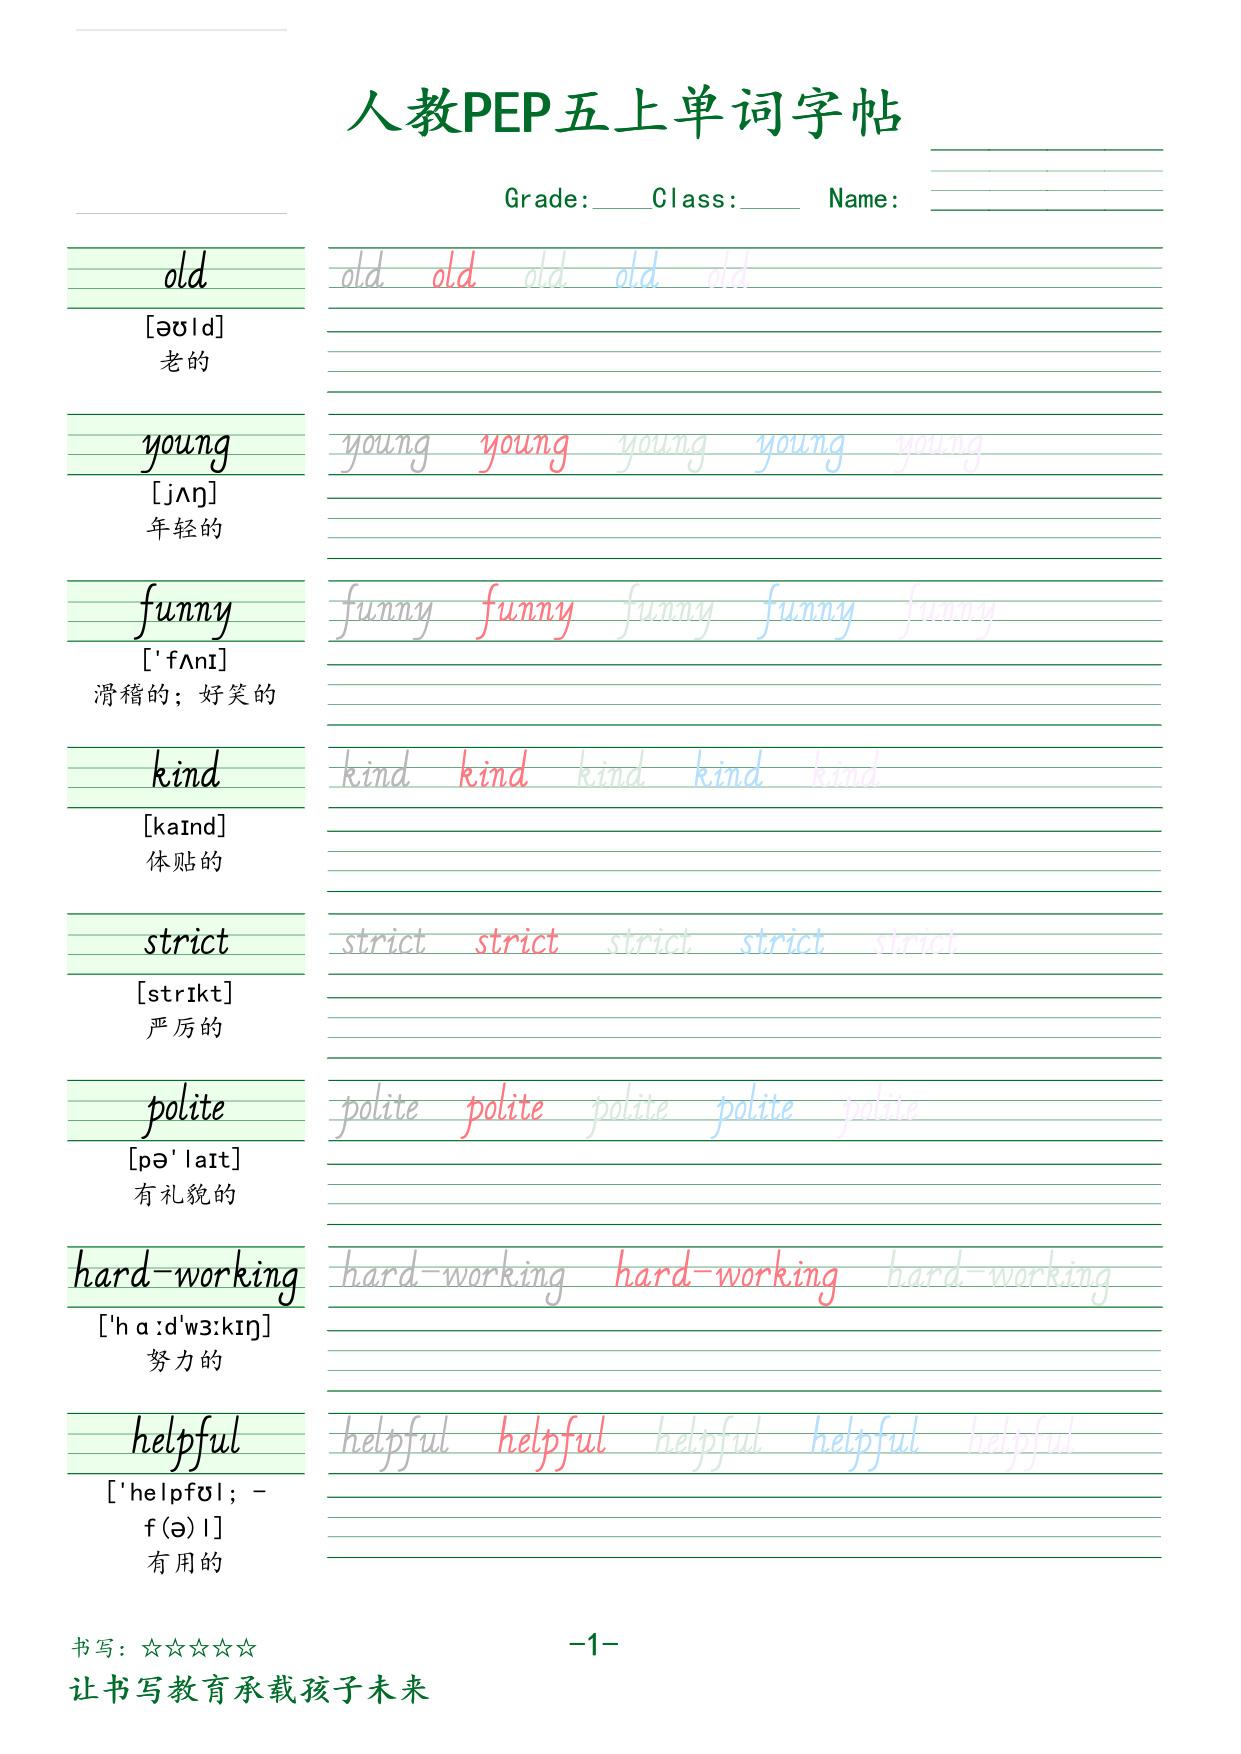 人教PEP五上单词字帖
Grade:____Class:____ Name:
old old old old old old
[əʊld]
老的
young young young young young young
[jʌŋ]
年轻的
funny funny funny funny funny funny
['fʌnɪ]
滑稽的；好笑的
kind kind kind kind kind kind
[kaɪnd]
体贴的
strict strict strict strict strict strict
[strɪkt]
严厉的
polite polite polite polite polite polite
[pə'laɪt]
有礼貌的
hard-working hard-working hard-working hard-working
['hɑːd'wɜːkɪŋ]
努力的
helpful helpful helpful helpful helpful helpful
['helpfʊl; -
f(ə)l]
有用的
书写：☆☆☆☆☆
-1-
让书写教育承载孩子未来